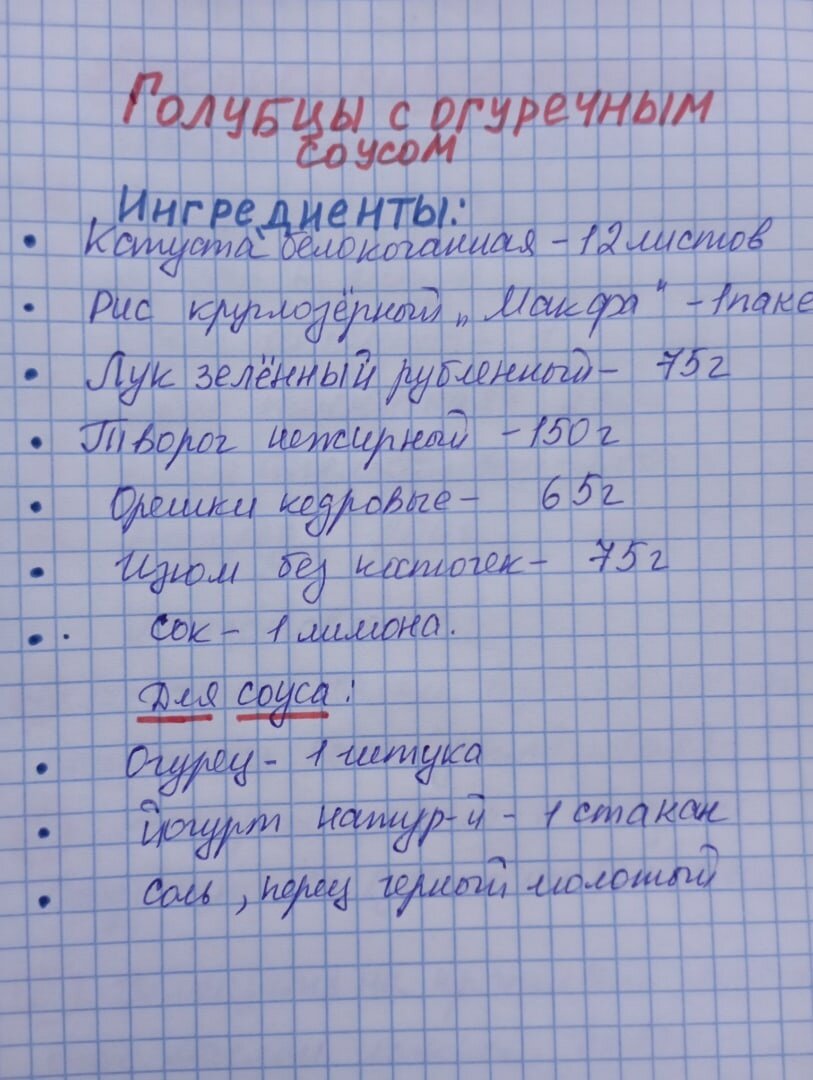 Голубцы с огуречным
соусом
Ингредиенты:
• Капуста белокочанная - 12 листов
• Рис круглозёрный „Макфа" - 1 паке
• Лук зелённый рубленный - 75 г
• Творог нежирный - 150 г
• Орешки кедровые - 65 г
• Изюм без косточек - 75 г
• . Сок - 1 лимона.
Для соуса:
• Огурец - 1 штука
• Йогурт натур-й - 1 стакан
• Соль, перец черный молотый